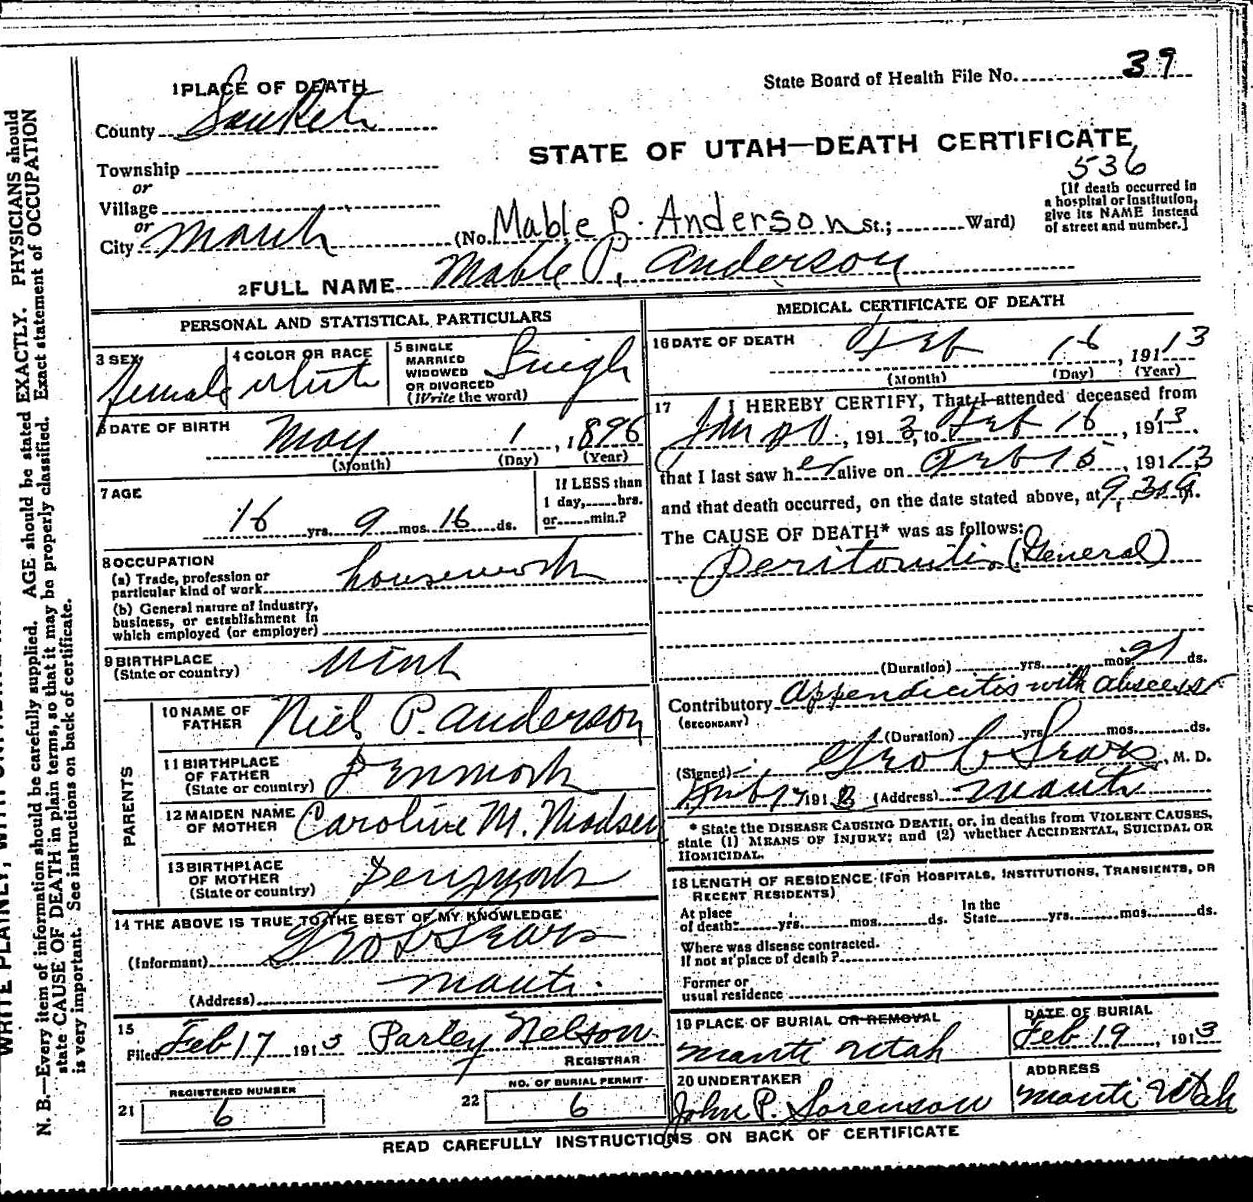 State Board of Health File No. 39
1 PLACE OF DEATH
County
STATE OF UTAH—DEATH CERTIFICATE
536
Township
or
Village
or
City
(No. Mable P. Anderson St.; Ward)
[If death occurred in
a hospital or institution,
give its NAME instead
of street and number.]
2 FULL NAME Mable P. Anderson
PERSONAL AND STATISTICAL PARTICULARS
3 SEX female
4 COLOR OR RACE white
5 SINGLE
MARRIED
WIDOWED
OR DIVORCED
(Write the word)
Single
6 DATE OF BIRTH May 1, 1896
(Month) (Day) (Year)
7 AGE
16 yrs. 9 mos. 16 ds.
If LESS than
1 day, hrs.
or min.?
8 OCCUPATION
(a) Trade, profession or
particular kind of work housework
(b) General nature of industry,
business, or establishment in
which employed (or employer)
9 BIRTHPLACE
(State or country)
PARENTS
10 NAME OF
FATHER Niels P. Anderson
11 BIRTHPLACE
OF FATHER
(State or country) Denmark
12 MAIDEN NAME
OF MOTHER Caroline M. Madsen
13 BIRTHPLACE
OF MOTHER
(State or country) Denmark
14 THE ABOVE IS TRUE TO THE BEST OF MY KNOWLEDGE
(Informant) Geo L Sears
(Address) Manti.
15
Filed Feb 17 1913 Parley Nelson
REGISTRAR
21 REGISTERED NUMBER
6
22 NO. OF BURIAL PERMIT
6
MEDICAL CERTIFICATE OF DEATH
16 DATE OF DEATH Feb 16, 1913
(Month) (Day) (Year)
17 I HEREBY CERTIFY, That I attended deceased from
, 1913, to Feb 16, 1913,
that I last saw her alive on Feb 15, 1913
and that death occurred, on the date stated above, at m.
The CAUSE OF DEATH* was as follows:
Peritonitis (General)
(Duration) yrs. mos. ds.
Contributory Appendicitis with abscess
(SECONDARY)
(Duration) yrs. mos. ds.
(Signed) Geo L Sears, M. D.
Feb 17 1913 (Address) Manti
* State the DISEASE CAUSING DEATH, or, in deaths from VIOLENT CAUSES,
state (1) MEANS OF INJURY; and (2) whether ACCIDENTAL, SUICIDAL OR
HOMICIDAL.
18 LENGTH OF RESIDENCE (FOR HOSPITALS, INSTITUTIONS, TRANSIENTS, OR
RECENT RESIDENTS)
At place
of death yrs. mos. ds.
In the
State yrs. mos. ds.
Where was disease contracted.
If not at place of death?
Former or
usual residence
19 PLACE OF BURIAL OR REMOVAL
Manti Utah
DATE OF BURIAL
Feb 19, 1913
20 UNDERTAKER
John P. Sorenson
ADDRESS
Manti Utah
READ CAREFULLY INSTRUCTIONS ON BACK OF CERTIFICATE
N. B.—Every item of information should be carefully supplied. AGE should be stated EXACTLY. PHYSICIANS should
state CAUSE OF DEATH in plain terms, so that it may be properly classified. Exact statement of OCCUPATION
is very important. See instructions on back of certificate.